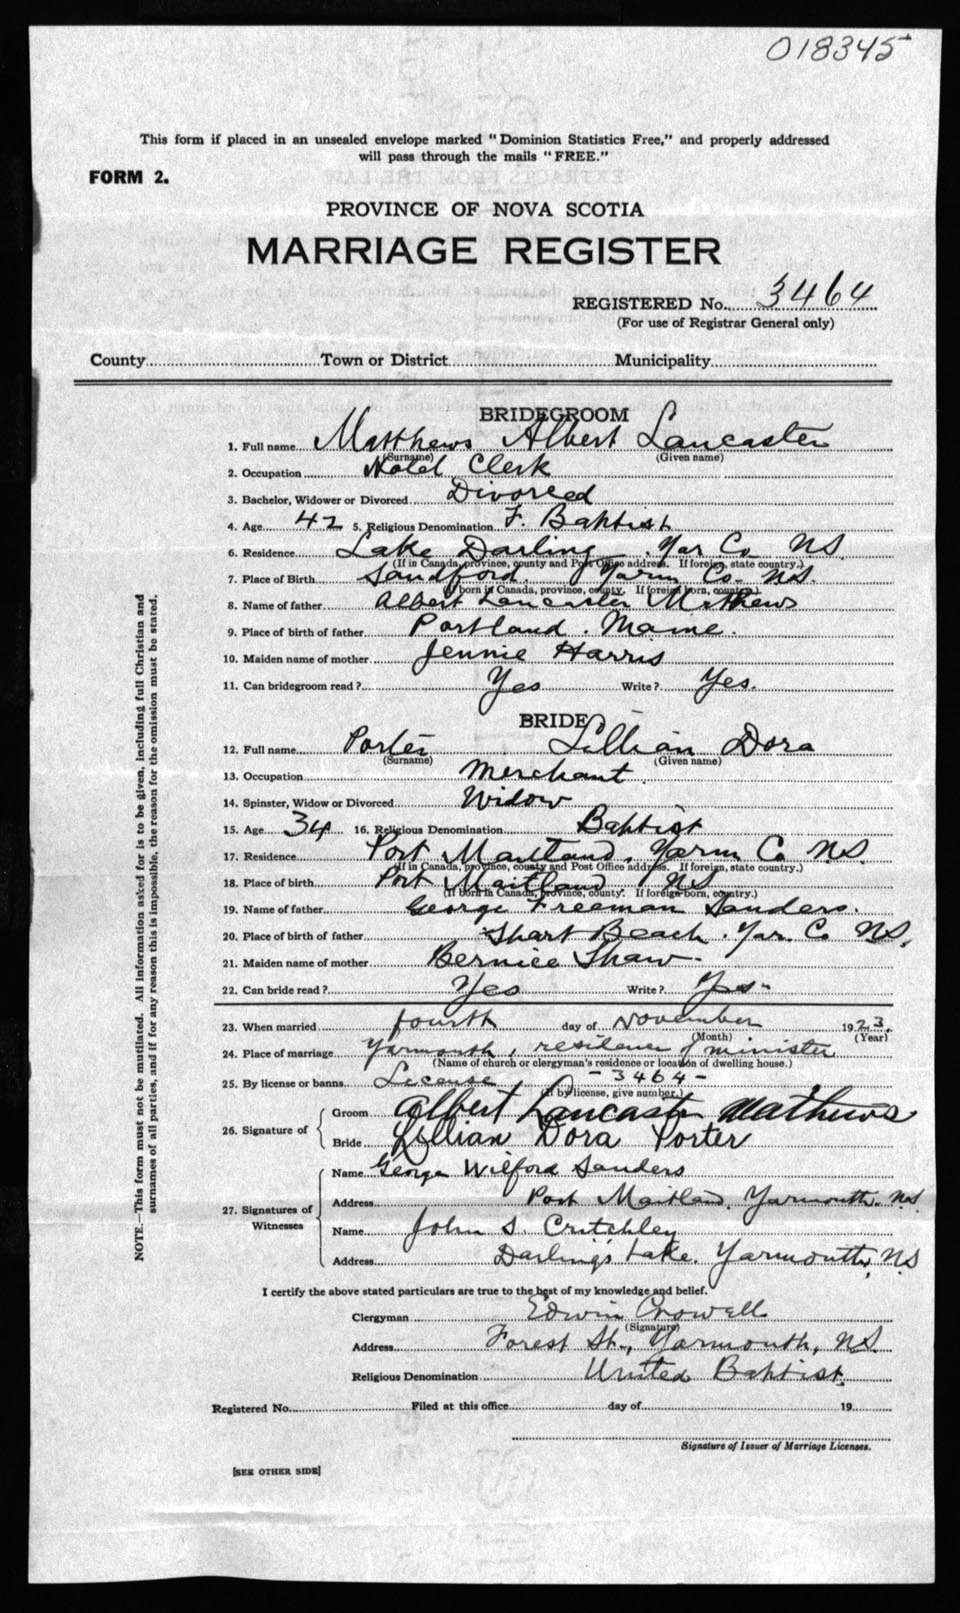 018345
This form if placed in an unsealed envelope marked "Dominion Statistics Free," and properly addressed
will pass through the mails "FREE."
FORM 2.
PROVINCE OF NOVA SCOTIA
MARRIAGE REGISTER
REGISTERED No. 3464
(For use of Registrar General only)
County Town or District Municipality
BRIDEGROOM
1. Full name Matthews Albert Lancaster
(Surname) (Given name)
2. Occupation Hotel Clerk
3. Bachelor, Widower or Divorced Divorced
4. Age 42 5. Religious Denomination F. Baptist
6. Residence Lake Darling Yar Co NS.
(If in Canada, province, county and Post Office address. If foreign, state country.)
7. Place of Birth Sandford. Yarm Co- NS.
(If born in Canada, province, county. If foreign born, country.)
8. Name of father Albert Lancaster Mathews
9. Place of birth of father Portland. Maine.
10. Maiden name of mother Jennie Harris
11. Can bridegroom read? Yes Write? Yes.
BRIDE
12. Full name Porter Lillian Dora
(Surname) (Given name)
13. Occupation Merchant
14. Spinster, Widow or Divorced Widow
15. Age 34 16. Religious Denomination Baptist
17. Residence Port Maitland, Yarm Co NS.
(If in Canada, province, county and Post Office address. If foreign, state country.)
18. Place of birth Port Maitland NS
(If born in Canada, province, county. If foreign born, country.)
19. Name of father George Freeman Sanders.
20. Place of birth of father Short Beach. Yar. Co NS.
21. Maiden name of mother Bernice Shaw-
22. Can bride read? Yes Write? Yes-
23. When married fourth day of November 1923.
(Month) (Year)
24. Place of marriage Yarmouth, residence of minister
(Name of church or clergyman's residence or location of dwelling house.)
25. By license or banns License, -3464-
(If by license, give number.)
26. Signature of Groom Albert Lancaster Mathews
Bride Lillian Dora Porter
27. Signatures of Witnesses Name George Wilford Sanders
Address Port Maitland, Yarmouth. N.S.
Name John S. Critchley
Address Darling's Lake. Yarmouth, N.S
I certify the above stated particulars are true to the best of my knowledge and belief.
Clergyman Edwin Crowell
(Signature)
Address Forest St., Yarmouth, N.S.
Religious Denomination United Baptist.
Registered No. Filed at this office day of 19
Signature of Issuer of Marriage Licenses.
[SEE OTHER SIDE]
NOTE.—This form must not be mutilated. All information asked for is to be given, including full Christian and
surnames of all parties, and if for any reason this is impossible, the reason for the omission must be stated.